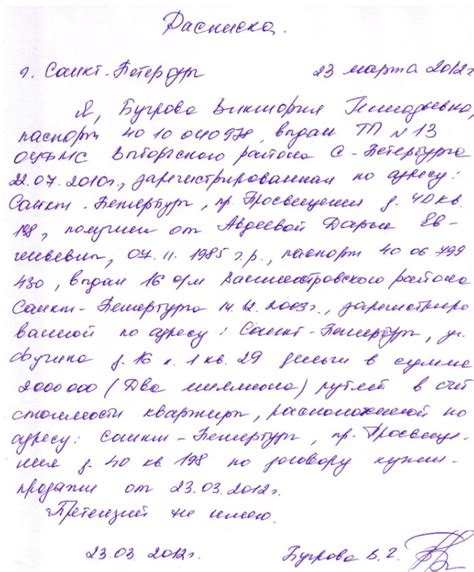 Расписка.
г. Санкт-Петербург 23 марта 2012г.
Я, Бугрова Виктория Геннадьевна,
паспорт 40 10 040978, выдан ТП №13
ОУФМС Выборгского района С-Петербурга
22.07.2010г., зарегистрированная по адресу:
Санкт-Петербург, пр Просвещения д. 40 кв
198, получила от Авдеевой Дарьи Ев-
геньевны, 07.11.1985 г.р., паспорт 40 06 799
430, выдан 16 о/м Василеостровского района
Санкт-Петербурга 14.12.2005г., зарегистриро
ванной по адресу: Санкт-Петербург, ул.
д. 16 к. 1 кв. 29 деньги в сумме
2000 000 (Два миллиона) рублей в счёт
стоимости квартиры, расположенной по
адресу: Санкт-Петербург, пр. Просвеще-
ния д. 40 кв 198 по договору купли-
продажи от 23.03.2012г.
Претензий не имею.
23.03.2012г. Бугрова В. Г.